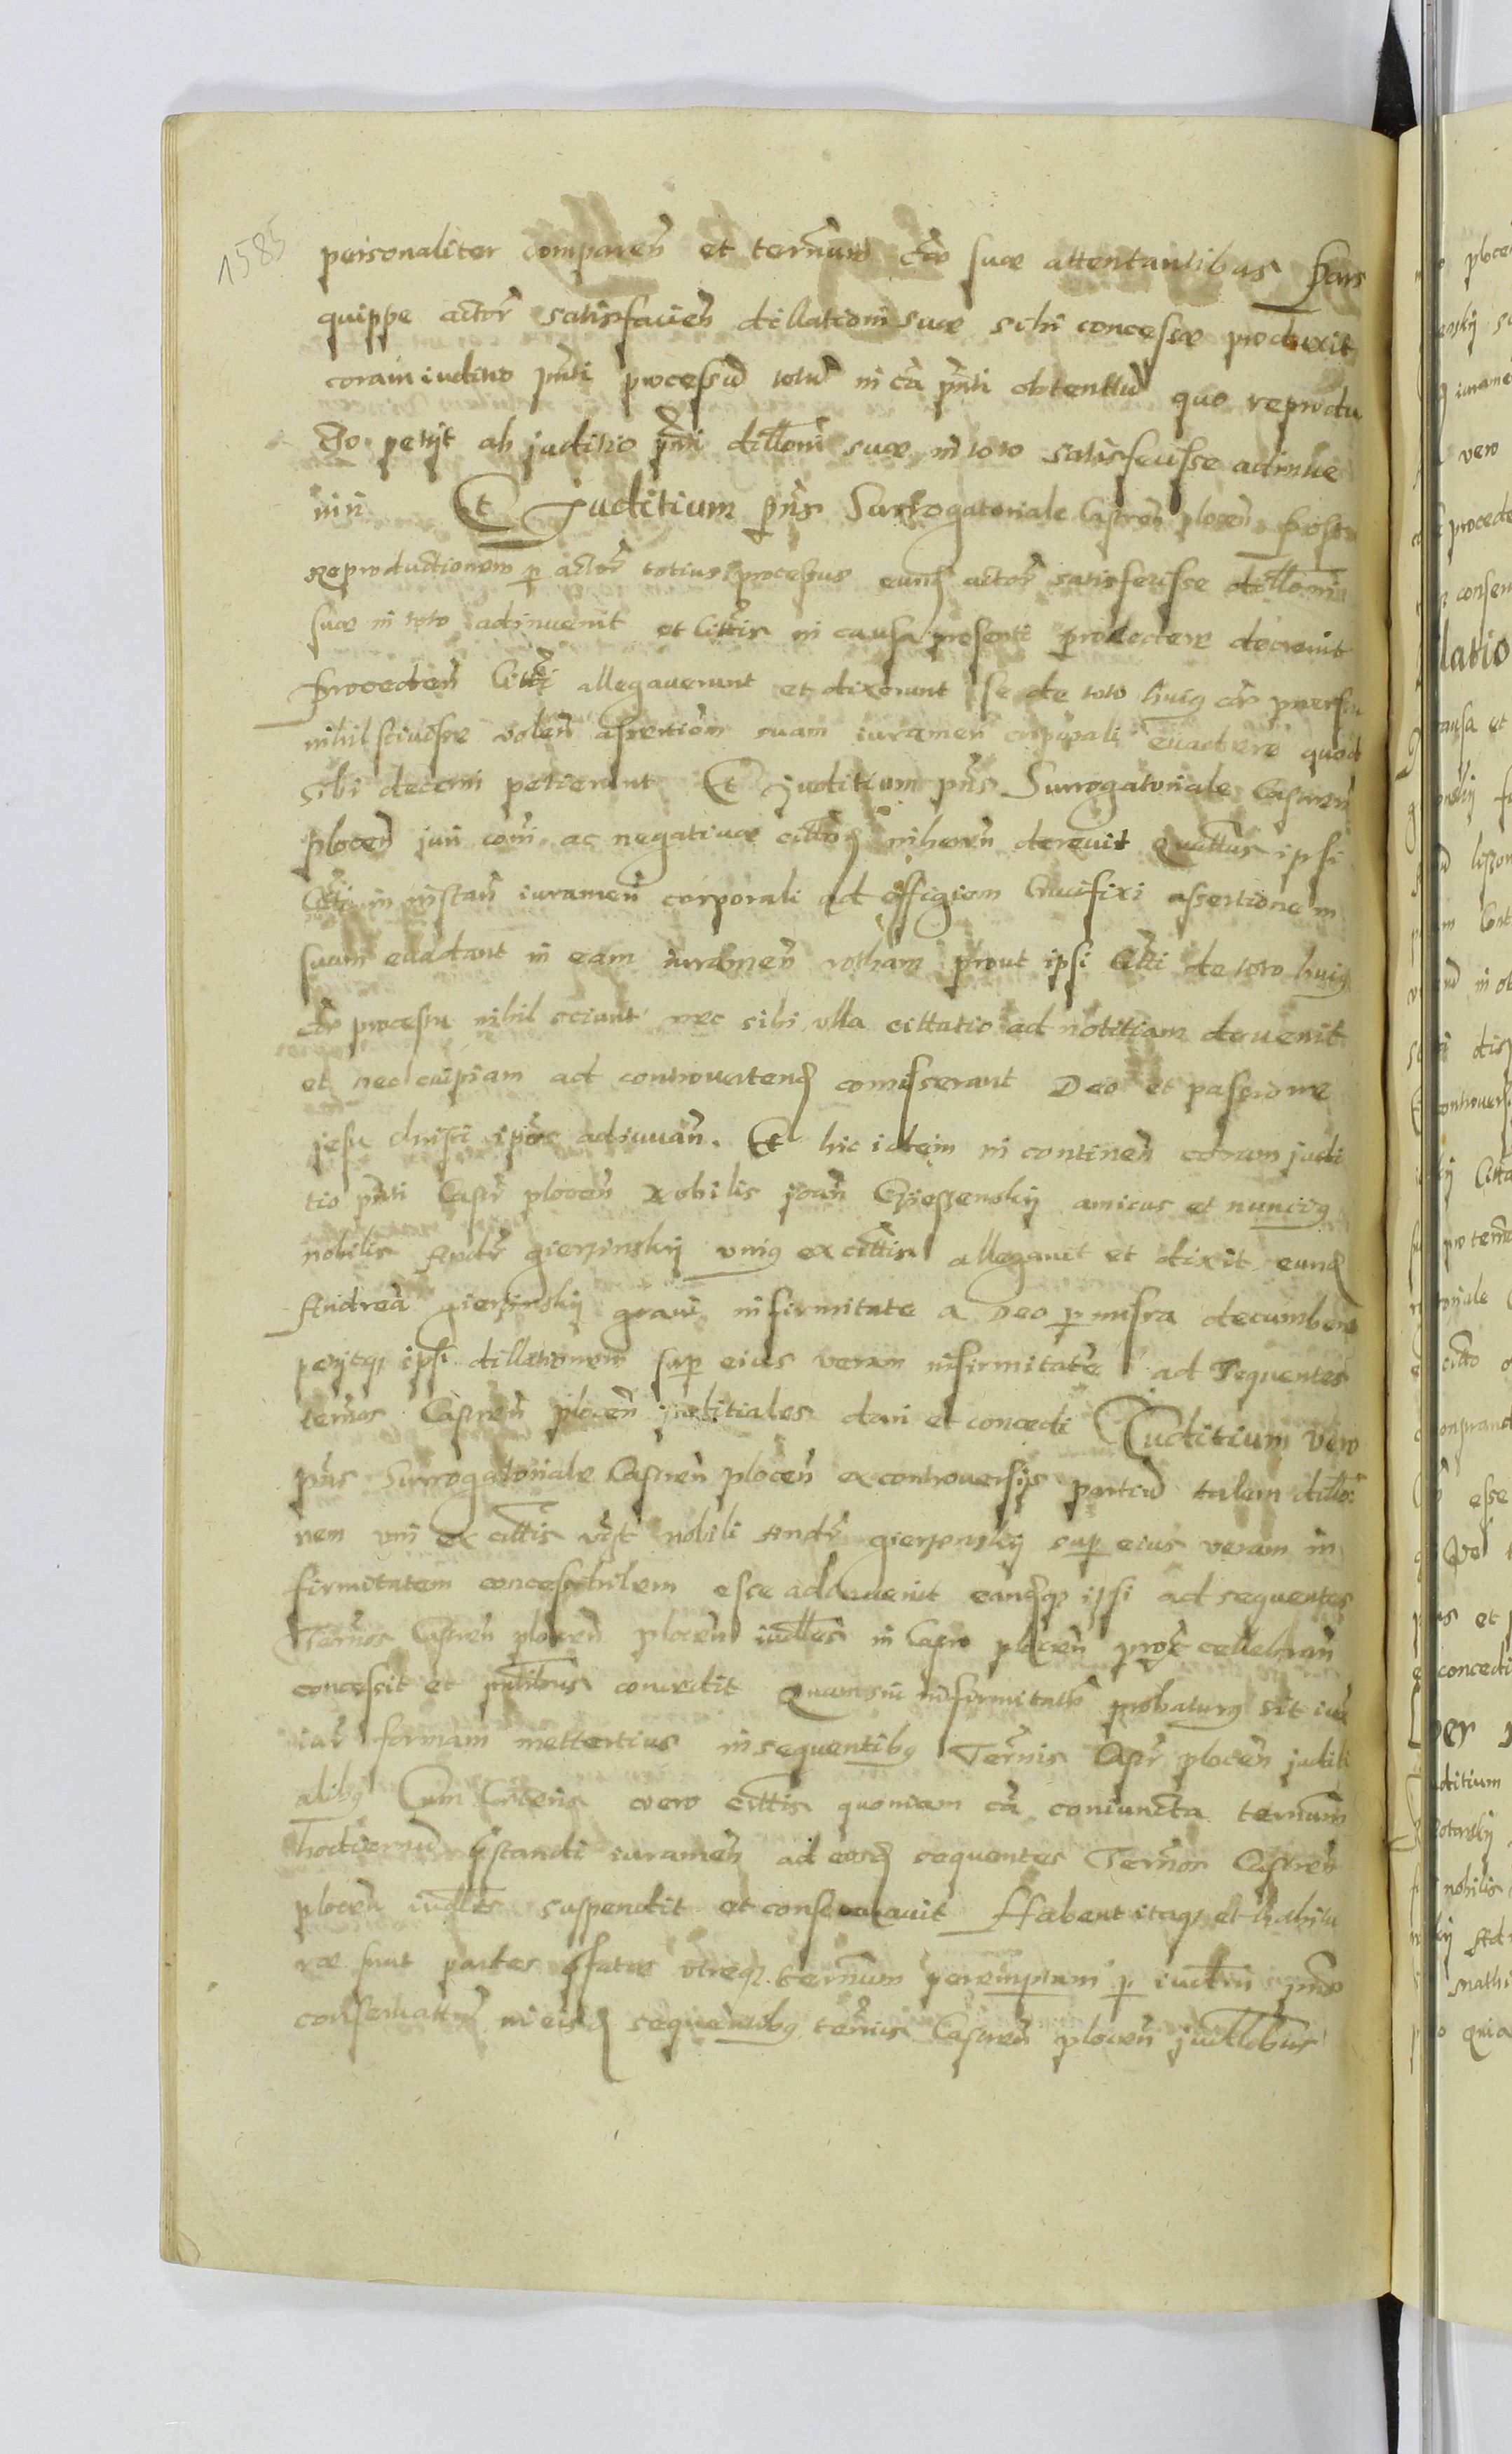 1585
personaliter comparen et terminum cae suae attentantibus Pars
quippe actor satisfacien dillationi suae sibi concessae produxit
coram iuditio pnti processu totu in ca pnti obtentu quo reprodu
cto petijt ab juditio pnti dilloni suae in toto satisfecisse adinue
niri Et Juditium pns Surrogatoriale Castren plocen Post
Reproductionem p actore totius processus eund actore satisfecisse dillonis
suae in toto adinuenit et Cittis in causa presenti procedere decreuit
Proceden Citti allegauerunt et dixerunt se de toto huig cae processu
nihil sciuisse volen assertion suam iuramen corporali euadere quod
sibi decerni petierunt Et Juditium pns Surrogatoriale Castren
plocen juri coi ac negativae cittor inheren decreuit Quattus ipsi
Citti in instan iuramen corporali ad effigiem Crucifixi assertionem
suam euadant in eam iuramen rotham prout ipsi Citti de toto huig
cae processu nihil sciunt nec sibi vlla cittatio ad notitiam deuenit
et nec cuipiam ad controuertend comisserant Deo et passione
jesu christi ipsos adiuuan. Et hic idem in continen coram judi
tio pnti Castr plocen Nobilis joan amicus et nuncig
nobilis Andr gierzinskij vnig ex cittis allegauit et dixit eund
Andrea gierzinskij graui infirmitate a Deo pmissa decumben
petijtq ipsi dillationem sup eius veram infirmitate ad Sequentes
ternos Castren plocen juditiales dari et concedi Juditium vero
pns Surrogatoriale Castren plocen ex controuersijs partiu talem dillo
nem vni ex cittis vzt nobili Andr gierzinskij sup eius veram in
firmitatem concessibilem esse adinuenit eandq ipsi ad sequentes
Ternos Castren plocen plocen iudlles in Castro plocen prox cellebran
concessit et pntibus concedit Quam sui infirmitate probaturg sit iux
iur formam mettertius in sequentibg Ternis Castr plocen juditi
alibg Cum Caeteris vero cittis quoniam ca coniuncta terminum
hodiernu pstandi iuramen ad eosd sequentes Ternos Castren
plocen iudlles suspendit et conseruauit Habent itaq et habitu
rae sunt partes pfatae vtreq terminum peremptum p iuditiu pns
conseruatum in eisd sequentibg ternis Castren plocen judlibus